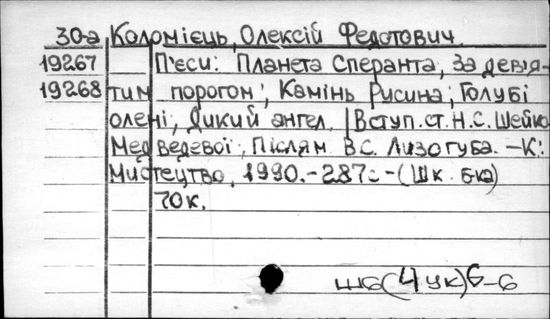 30-а Коломієць, Олексій Федотович.
19267 П'єси: Планета Сперанта, За девя-
19268 тим порогом; Камінь Русина; Голубі
олені; Дикий ангел. | Вступ. ст. Н.С. Шейко
Медведевої; Післям. В.С. Лизогуба. – К:
Мистецтво, 1990. – 287с – (Шк. б-ка)
70к.
ш6(4ук)6-6